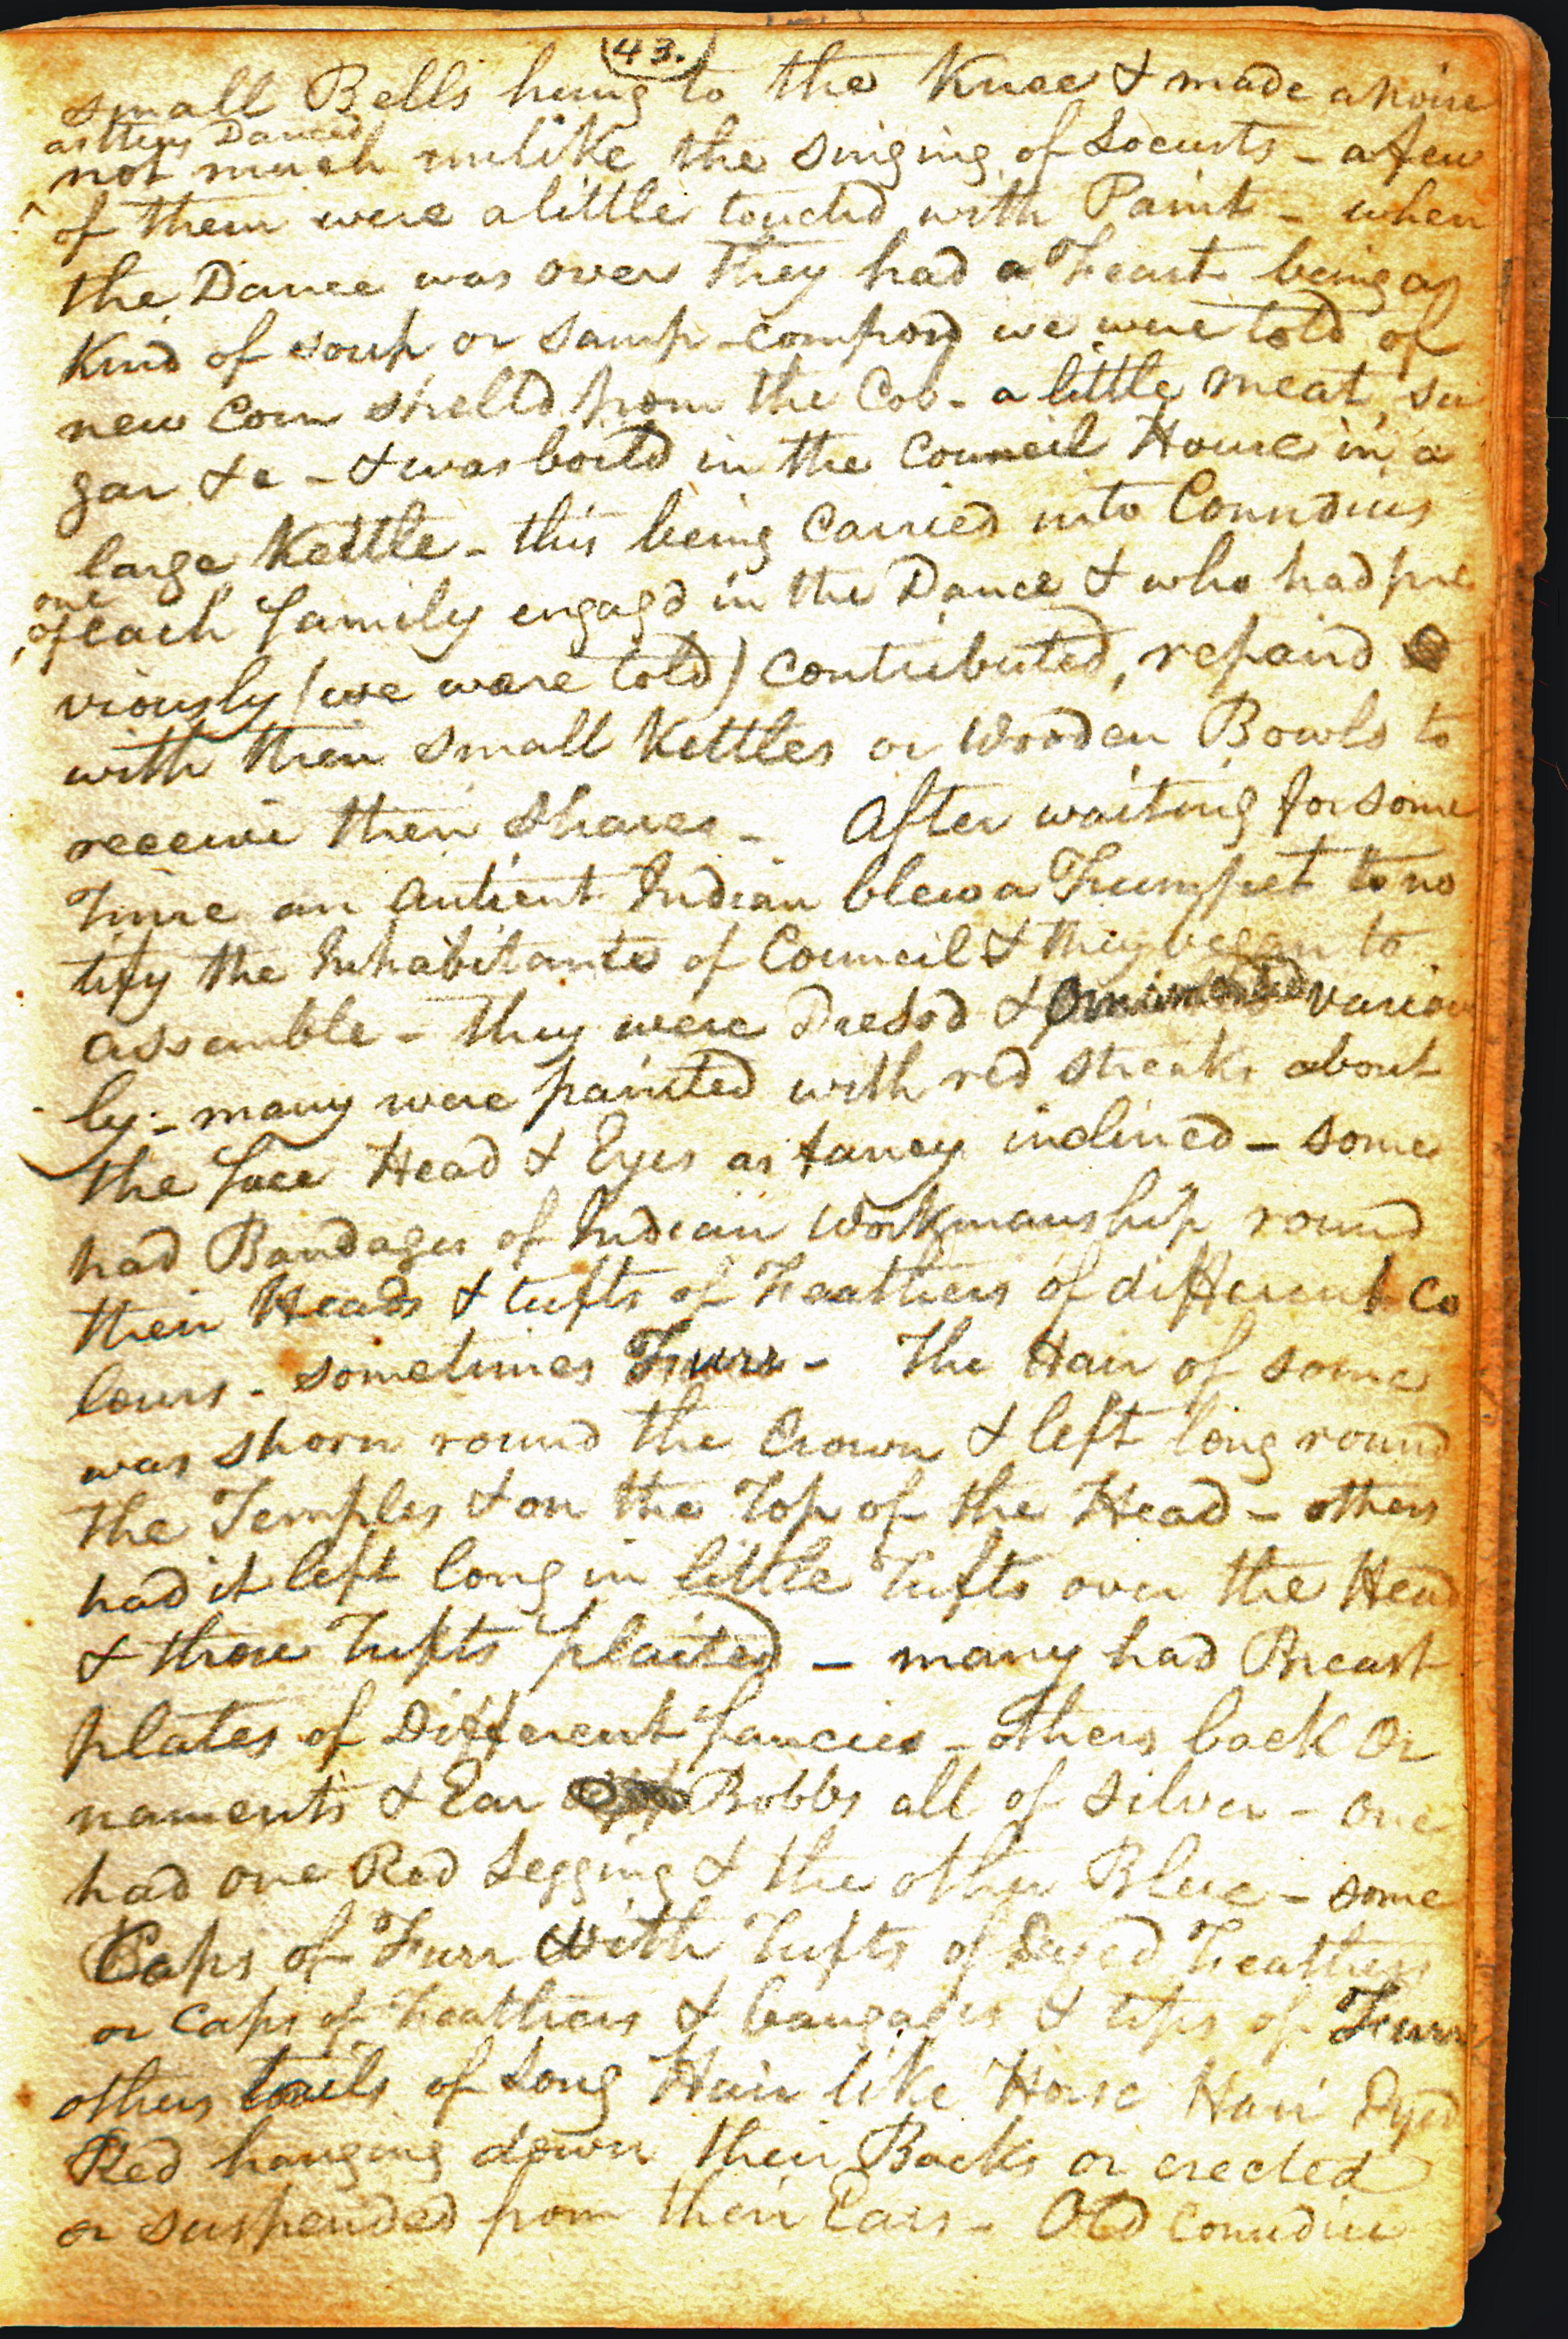 43.
small Bells hung to the Knee & made a noise
as they Danced
not much unlike the singing of Locusts - a few
of them were a little touchd with Paint - when
the Dance was over they had a Feast being a
Kind of soup or samp - composd we were told of
new Corn shelld from the Cob - a little meat, su
gar &c - & was boild in the Council House in a
large Kettle - this being Carried into Conndius
one
of each family engagd in the Dance & who had pre
viously (we were told) Contributed, repaird
with their small Kettles or Wooden Bowls to
receive their Shares - After waiting for some
Time an Antient Indian blew a Trumpet to no
tify the Inhabitants of Council & they began to
assemble - they were Dressd & Ornamented various
ly - many were painted with red streaks about
the face Head & Eyes as fancy inclined - some
had Bandages of Indian Workmanship round
their Heads & tufts of Feathers of different Co
lours - sometimes Furr - The Hair of some
was shorn round the Crown & left long round
the Temples & on the Top of the Head - others
had it left long in little Tufts over the Head
& those Tufts plaited - many had Breast
plates of Different fancies - others back Or
naments & Ear Bobbs all of Silver - one
had one Red Legging & the other Blue - some
Caps of Furr With Tufts of Dyed Feathers
or Caps of Feathers & bangages & tips of Furr
others tails of Long Hair like Horse Hair Dyed
Red hanging down their Backs or erected
or suspended from their Ears - Old Conndiu